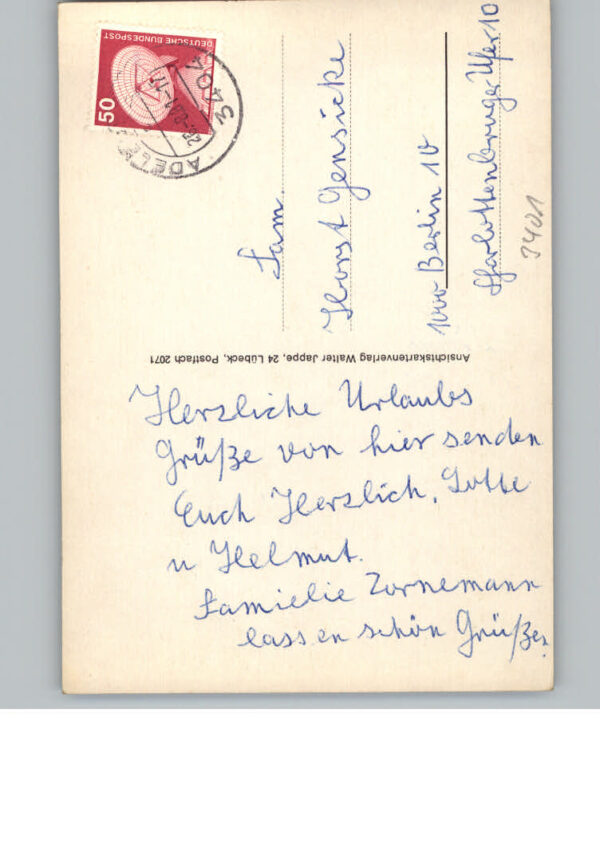 DEUTSCHE BUNDESPOST
50
3404
ADELE
Fam.
Horst Gensicke
1000 Berlin 10
Charlottenbruger Ufer 10
3401
Ansichtskartenverlag Walter Jappe, 24 Lübeck, Postfach 2071
Herzliche Urlaubs
Grüße von hier senden
Euch Herzlich. Lotte
u Helmut.
Familie Zornemann
lassen schön Grüßen